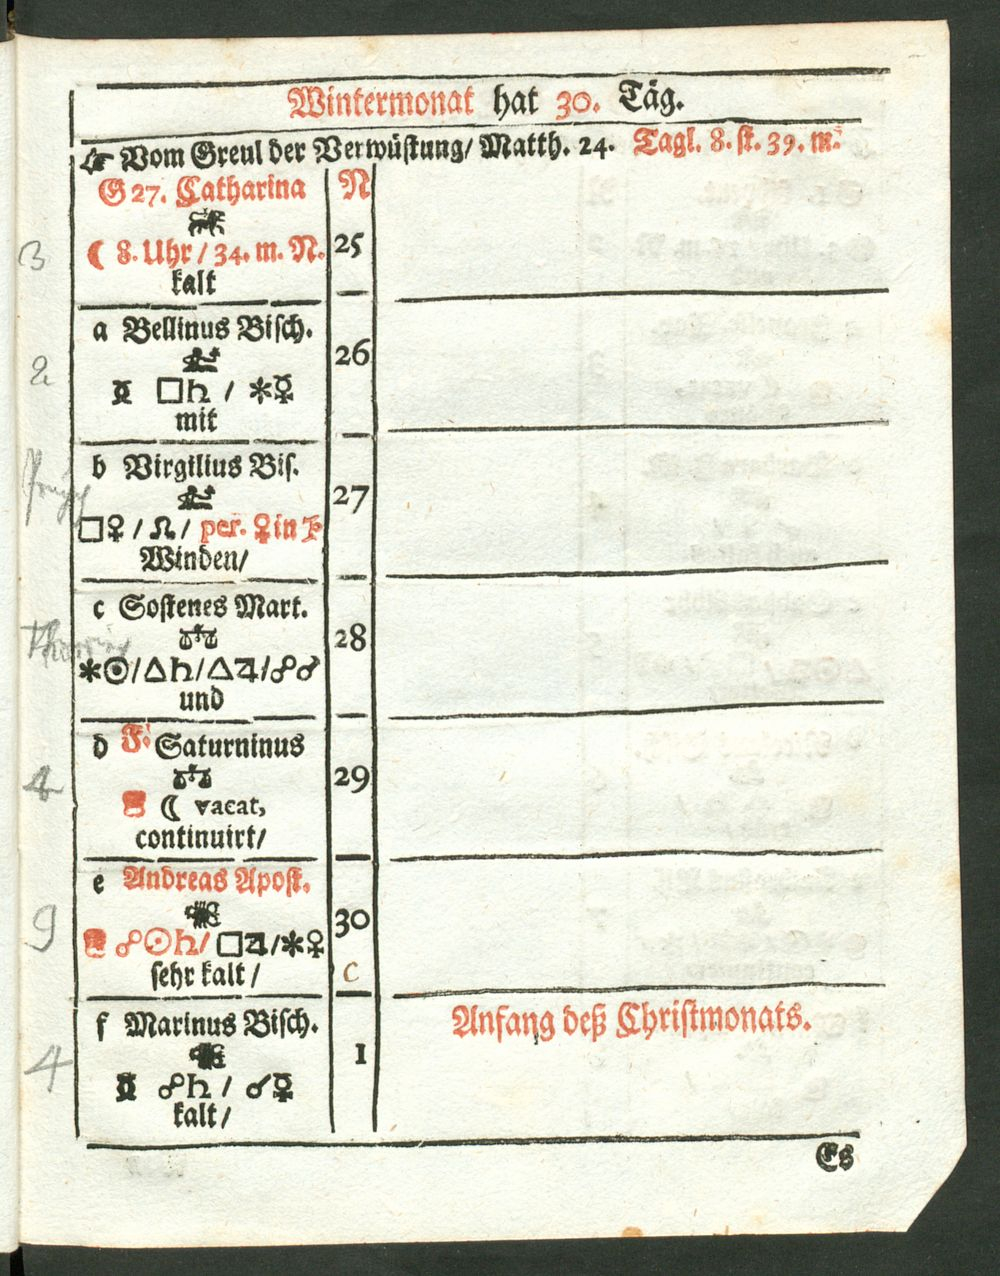 Wintermonat hat 30. Täg.
☞ Vom Greul der Verwüstung/ Matth. 24. Tagl. 8. st. 39. m.
G 27. Catharina N
☾ 8. Uhr / 34. m. N. 25
kalt
3
a Bellinus Bisch.
26
2
□♄ / ✶☿
mit
b Virgilius Bis.
27
□♀ / ☊ / per. ♀ in
Winden/
c Sostenes Mart.
28
✶☉/△♄/△♃/☍♂
und
d F. Saturninus
29
4
☾ vacat,
continuirt/
e Andreas Apost.
30
9
☍☉♄/ □♃/✶♀
sehr kalt / C
f Marinus Bisch. Anfang deß Christmonats.
1
4
☍♄ / ☌☿
kalt/
Es